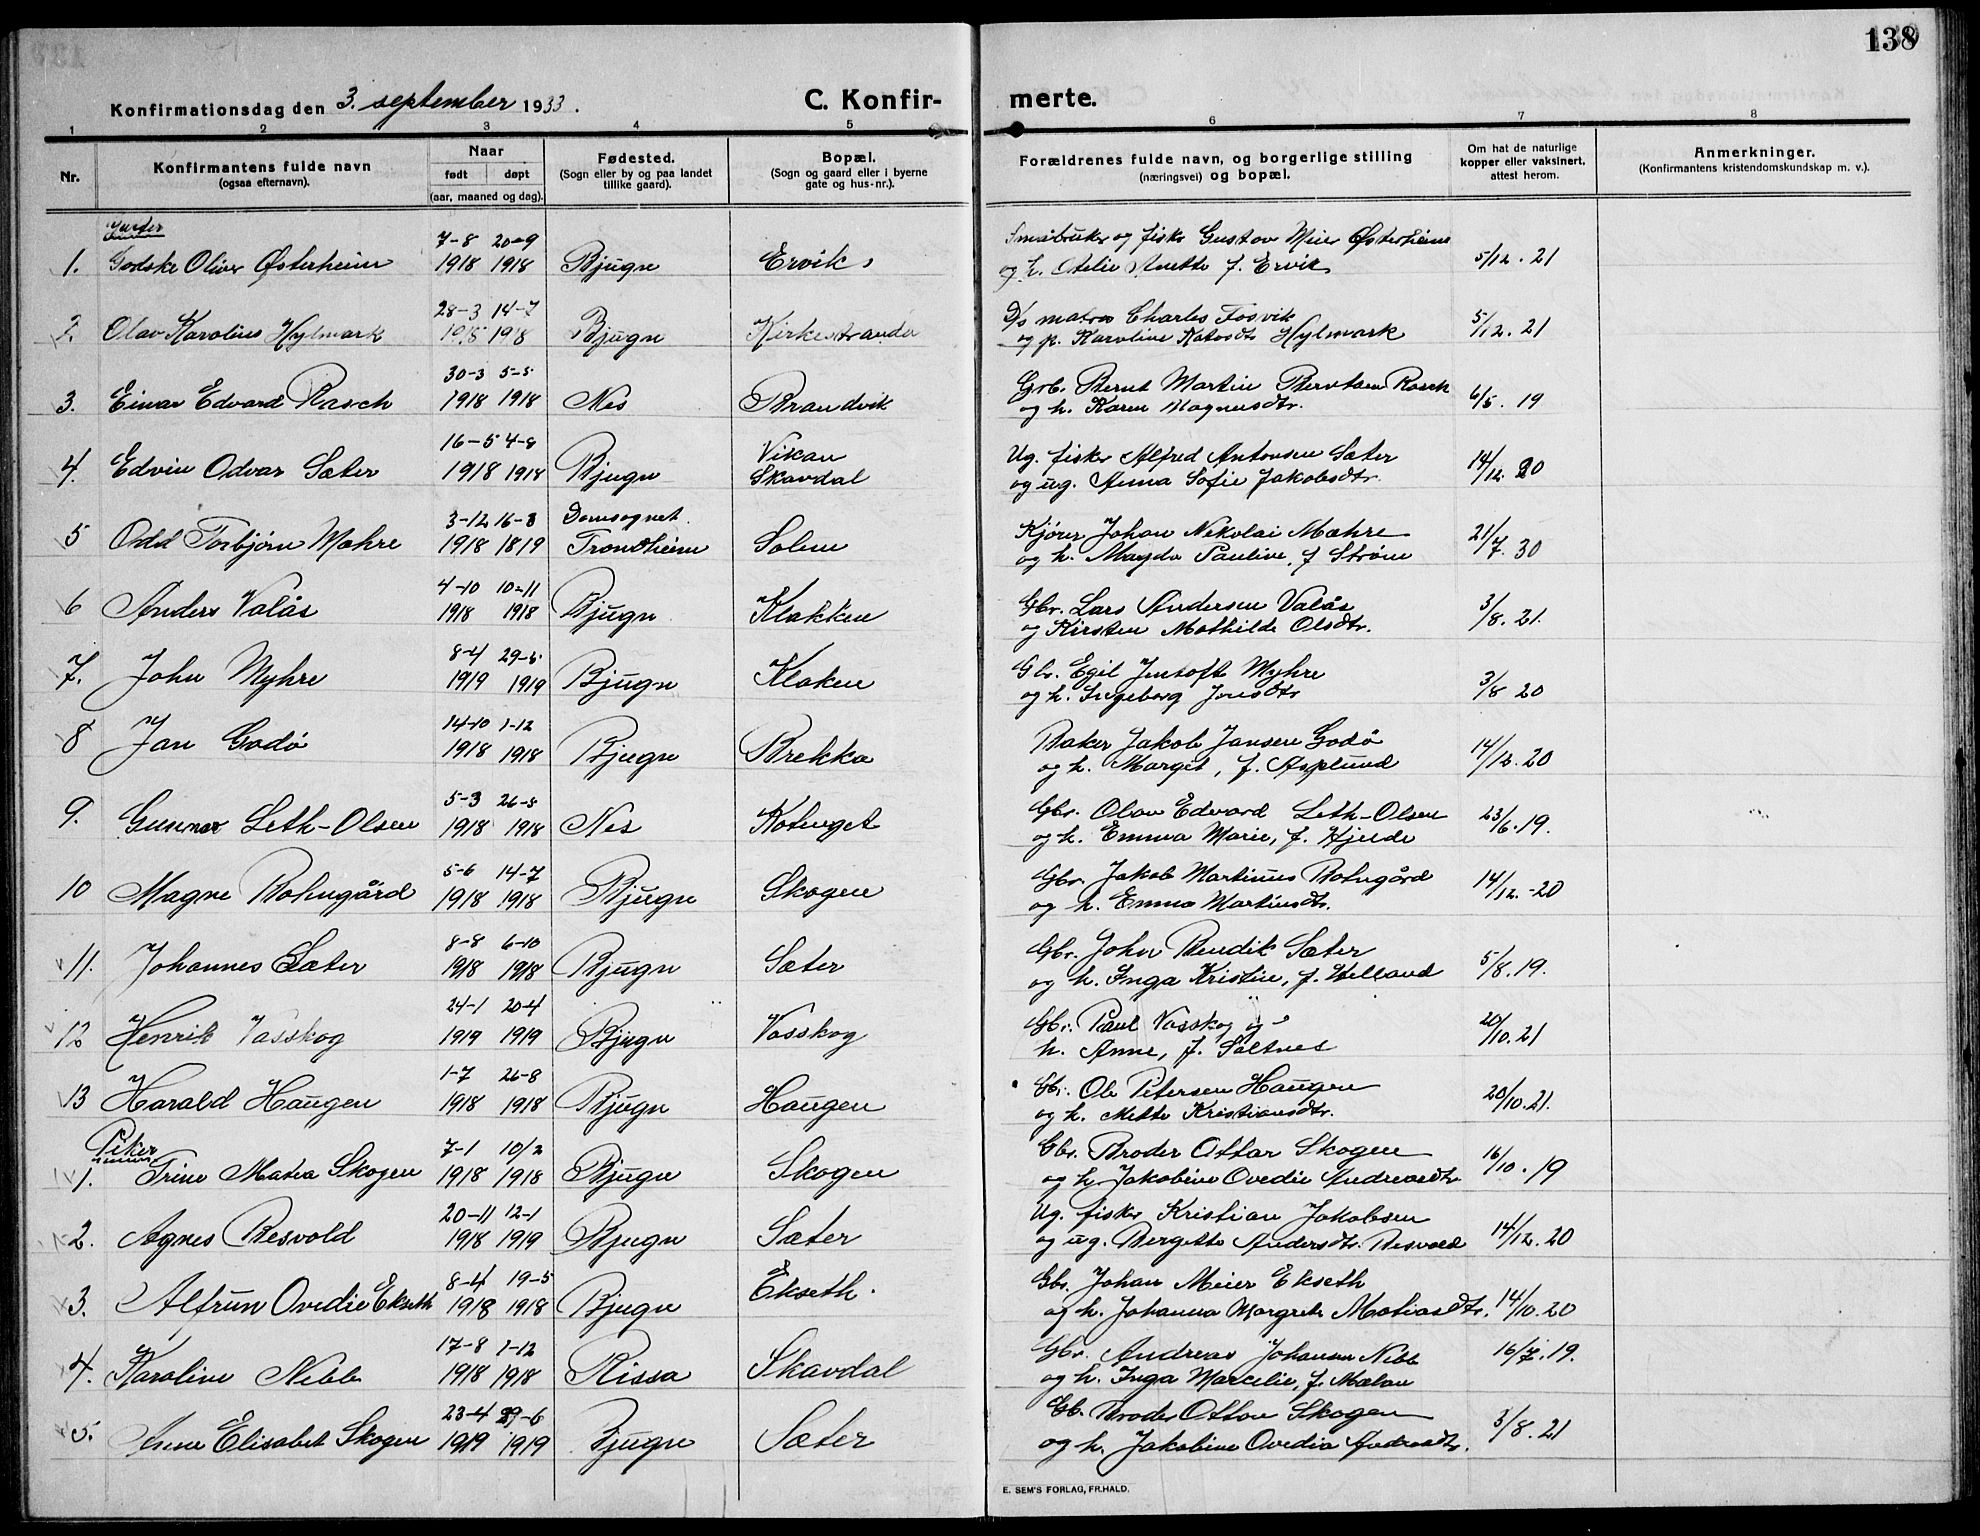 138
Konfirmationsdag den 3. september 1933.
C. Konfirmerte.
1 2 3 4 5 6 7 8
Nr.
Konfirmantens fulde navn
(ogsaa efternavn).
Naar
født døpt
(aar, maaned og dag).
Fødested.
(Sogn eller by og paa landet
tillike gaard).
Bopæl.
(Sogn og gaard eller i byerne
gate og hus-nr.).
Forældrenes fulde navn, og borgerlige stilling
(næringsvei) og bopæl.
Om hat de naturlige
kopper eller vaksinert,
attest herom.
Anmerkninger.
(Konfirmantens kristendomskundskap m. v.).
Gutter
7-8 20-9 Småbruker og fisker Gustav Meier Østerheim
1. Godske Oliver Østerheim 1918 1918 Bjugn Ervik og h. Otelie Anette f. Ervik 5/12. 21
28-3 14-7 Charles Fosvik
2. Olav Karolius Hylmark 1918 1918 Bjugn Kirkestranda og p. Karoline Hylmark 5/12. 21
30-3 5-5 Grb. Bernt Martin Berntsen Rasch
3. Einar Edvard Rasch 1918 1918 Nes Brandvik og h. Karen Magnusdtr. 6/5. 19
16-5 4-8 Vikan Ug. fisker Alfred Antonsen Sæter
4. Edvin Odvar Sæter 1918 1918 Bjugn Skavdal og ug. Anna Sofie Jakobsdtr. 14/12. 20
3-12 16-3 Domsognet. Kjører Johan Nikolai Mæhre
5 Odd Torbjørn Mæhre 1918 1819 Trondheim Solem og h. Magda Pauline, f Strøm 21/7. 30
4-10 10-11 Gbr. Lars Andersen Valås
6 Anders Valås 1918 1918 Bjugn Klakken og Kirsten Mathilde Olsdtr. 3/8. 21.
8-4 29-6 Gbr. Egil Jentoft Myhre
7. John Myhre 1919 1919 Bjugn Klaken og h. Ingeborg Jonsdtr 3/8 20
14-10 1-12 Baker Jakob Jansen Godø
8 Jan Godø 1918 1918 Bjugn Brekka og h. Margit, f. Asplund 14/12. 20
5-3 26-5 Gbr. Olav Edvard Leth-Olsen
9. Gunnar Leth-Olsen 1918 1918 Nes Kotenget og h. Emma Marie, f. Hjelde 23/6. 19.
5-6 14-7 Gbr. Jakob Martinus Botngård
10 Magne Botngård 1918 1918 Bjugn Skogen og h. Emma Martinsdtr. 14/12.-20
8-8 6-10 Gbr. John Bendik Sæter
11. Johannes Sæter 1918 1918 Bjugn Sæter og h. Inga Kristine, f. Helland 5/8. 19.
24-1 20-4 Gbr. Paul Vasskog og
12 Henrik Vasskog 1919 1919 Bjugn Vasskog h. Anne, f. Saltnes 20/10. 21
1-7 26-8 Gbr. Ole Petersen Haugen
13 Harald Haugen 1918 1918 Bjugn Haugen og h. Mette Kristiansdtr. 20/10. 21.
Piker
7-1 10/2 Gbr. Broder Ottar Skogen
1. Trine Matea Skogen 1918 1918 Bjugn Skogen og h. Jakobine Ovedie Andreasdtr 16/10. 19
20-11 12-1 Ug. fisker Kristian Jakobsen
2. Agnes Resvold 1918 1919 Bjugn Sæter og ug. Bergette Andersdtr. Resvold 14/12. 20
8-4 19-5 Gbr. Johan Meier Ekseth
3. Alfrun Ovedie Ekseth 1918 1918 Bjugn Ekseth. og h. Johanna Margrete Mathiasdtr. 14/10. 20
17-8 1-12 Gbr. Andreas Johansen Nebb
4. Karoline Nebb 1918 1918 Rissa Skavdal og h. Inga Marcelie, f. Mælan 16/7. 19.
23-4 29-6 Gb. Broder Ottar Skogen
5. Anne Elisabet Skogen 1919 1919 Bjugn Sæter og h. Jakobine Ovedia Andreasdtr. 3/8. 21
E. SEM'S FORLAG, FR.HALD.